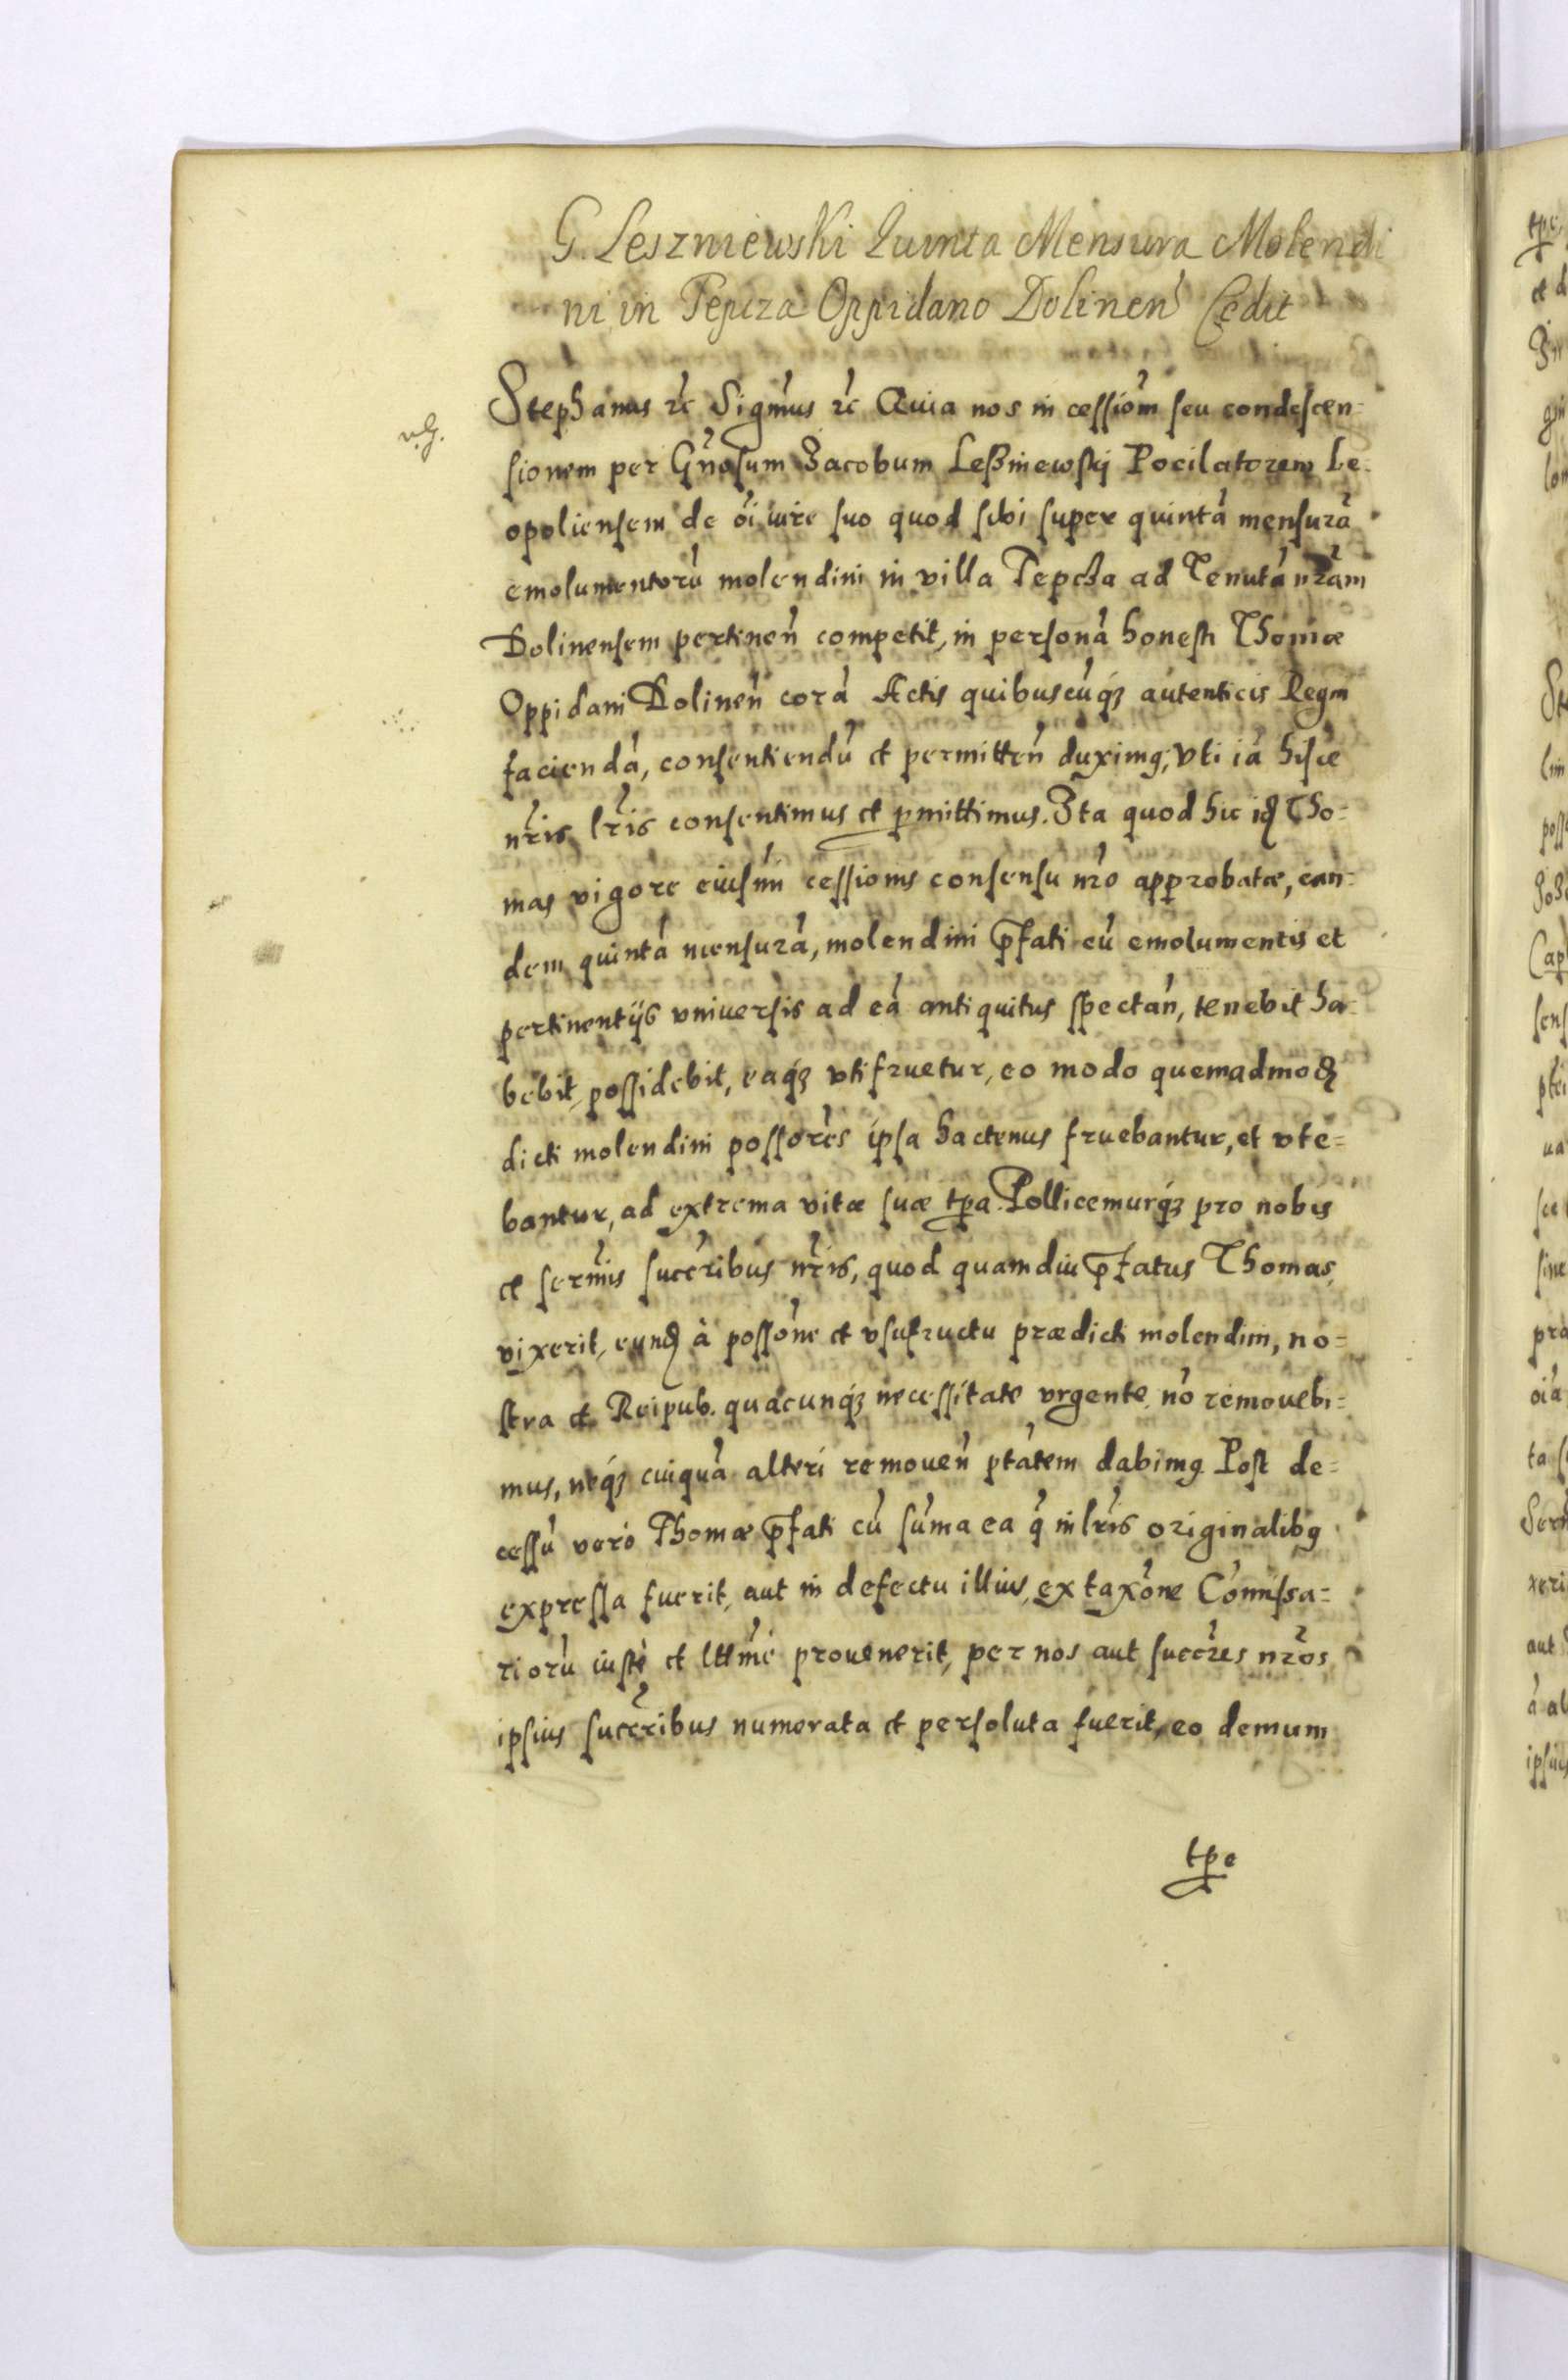 G. Leszniewski Quinta Mensura Molendi
ni in Tepcza Oppidano Dolinen̄ Cedit
Stephanus ꝛc Sigm̄us ꝛc Quia nos in cessiōm seu condescen=
sionem per Gn̄osum Jacobum Leßniewskij Pocilatorem Le=
opoliensem de ōi iure suo quod sibi super quintā mensurā
emolumentorū molendini in villa Tepcza ad Tenutā nr̄am
Dolinensem pertinen̄ competit, in personā honesti Thomæ
Oppidani Dolinen̄ corā Actis quibuscūqꝫ autenticis Regni
faciendā, consentiendū et permitten̄ duximꝰ, vti iā hisce
nr̄is lr̄is consentimus et ꝑmittimus. Ita quod hic idꝫ Tho=
mas vigore eiusm̄i cessionis consensu nr̄o approbatæ, ean=
dem quintā mensurā, molendini p̄fati cū emolumentis et
pertinentijs vniuersis ad eā antiquitus spectan̄, tenebit ha=
bebit, possidebit, eaqꝫ vti fruetur, eo modo quemadmodꝫ
dicti molendini possōres ipsa hactenus fruebantur, et vte=
bantur, ad extrema vitæ suæ tꝑa. Pollicemurqꝫ pro nobis
et serm̄is succr̄ibus nr̄is, quod quamdiu p̄fatus Thomas
vixerit, eundꝫ à possōne et vsufructu prædicti molendini, no=
stra et Reipub. quacunqꝫ necessitate vrgente nō remouebi=
mus, neqꝫ cuiquā alteri remouen̄ ptātem dabimꝰ Post de=
cessū vero Thomæ p̄fati cū sum̄a ea q̄ in lr̄is originalibꝰ
expressa fuerit, aut in defectu illius, ex taxōne Com̄issa=
riorū iustè et lttm̄e prouenerit, per nos aut succr̄es nr̄os
ipsius succr̄ibus numerata et persoluta fuerit, eo demum
tꝑe